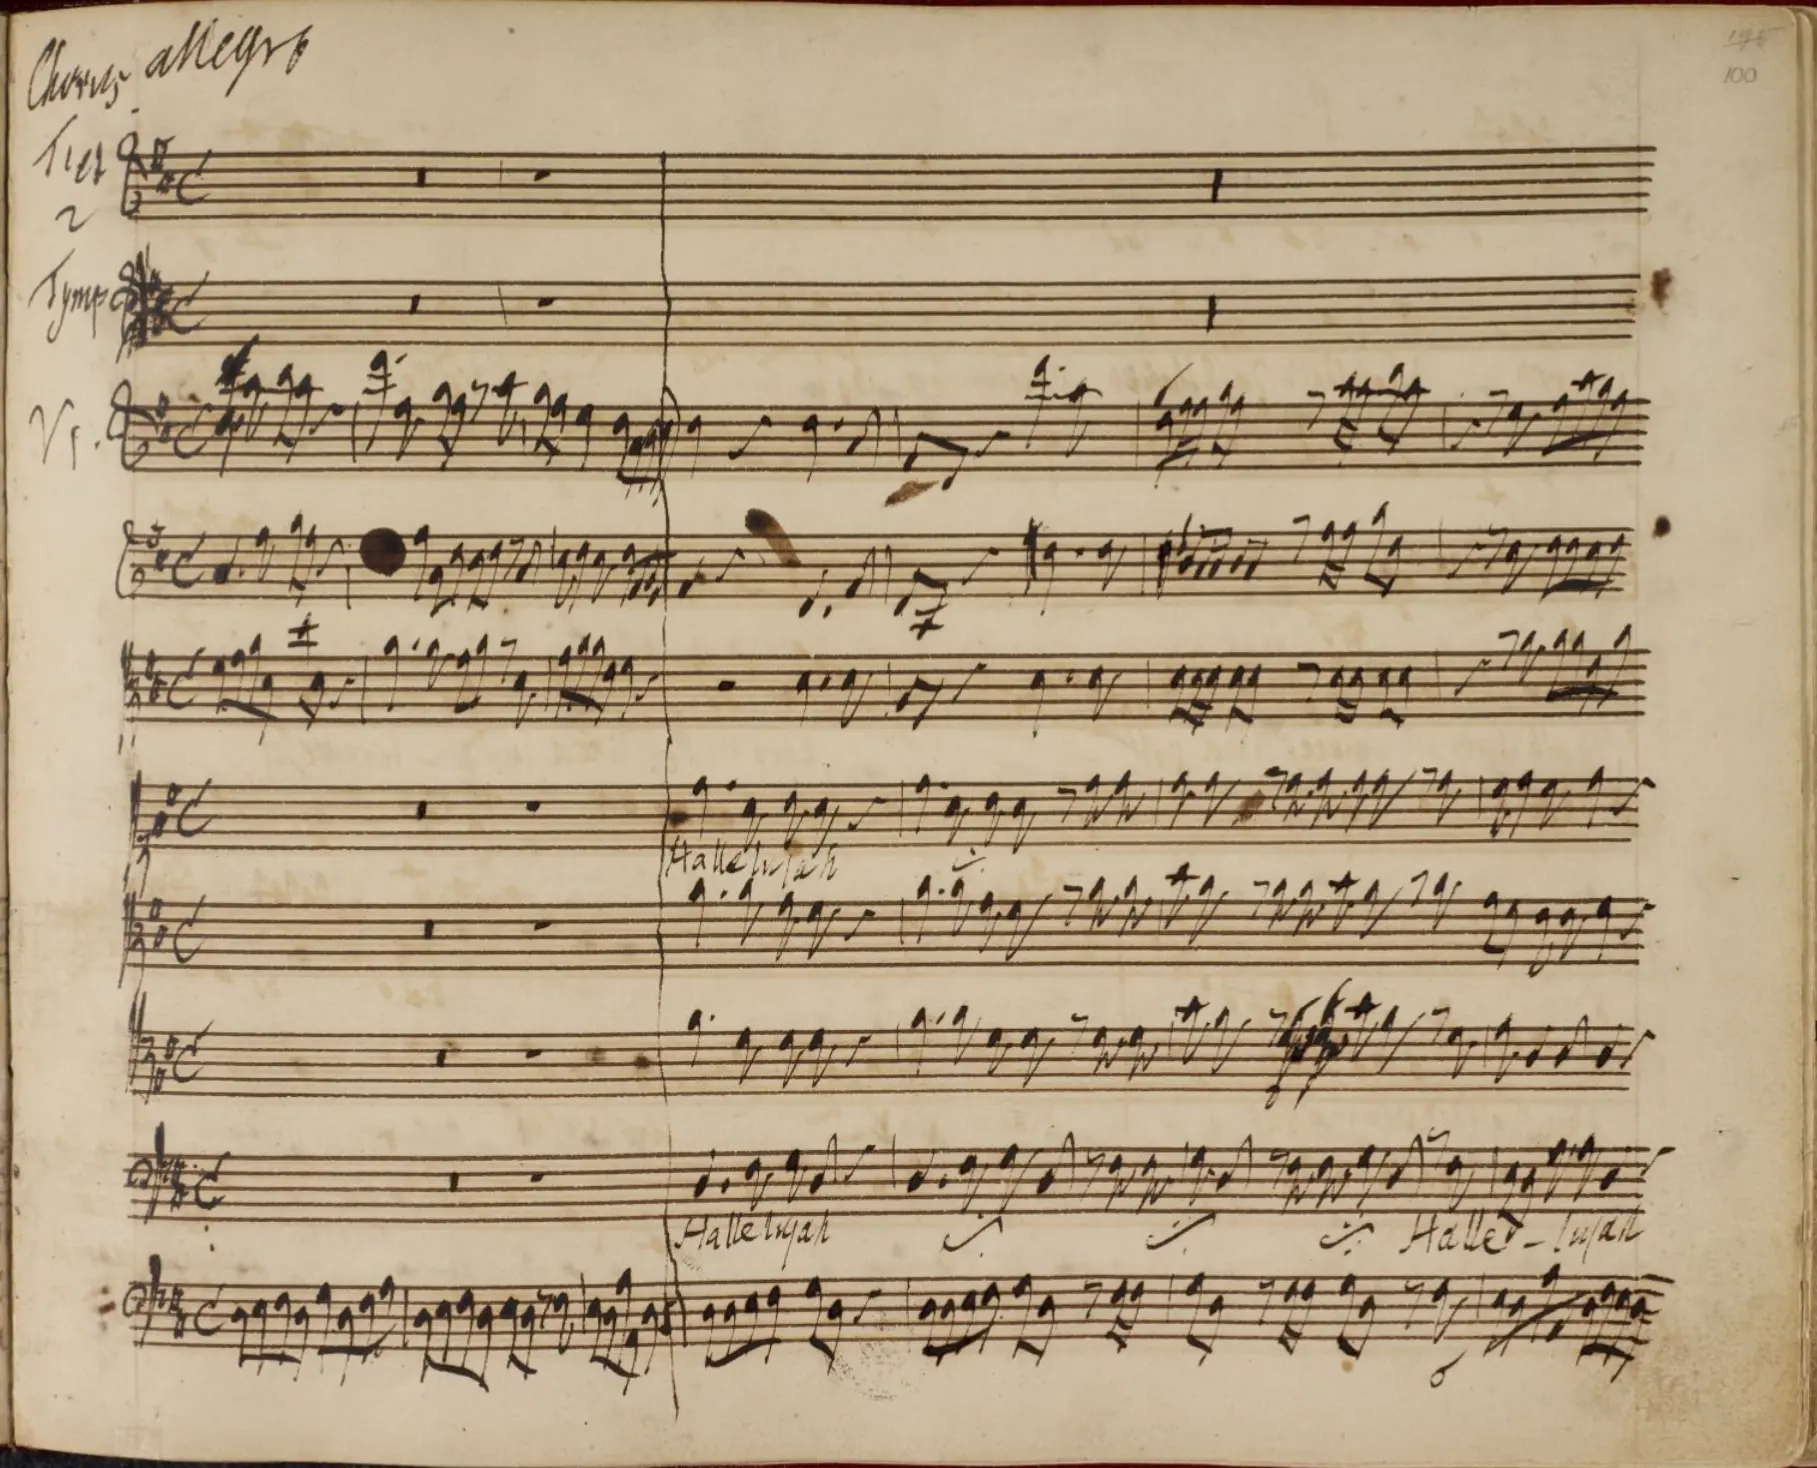 Chorus allegro
100
Tr 1 et
2
Tymp
V 1.
Hallelujah
Hallelujah Halle-lujah
6